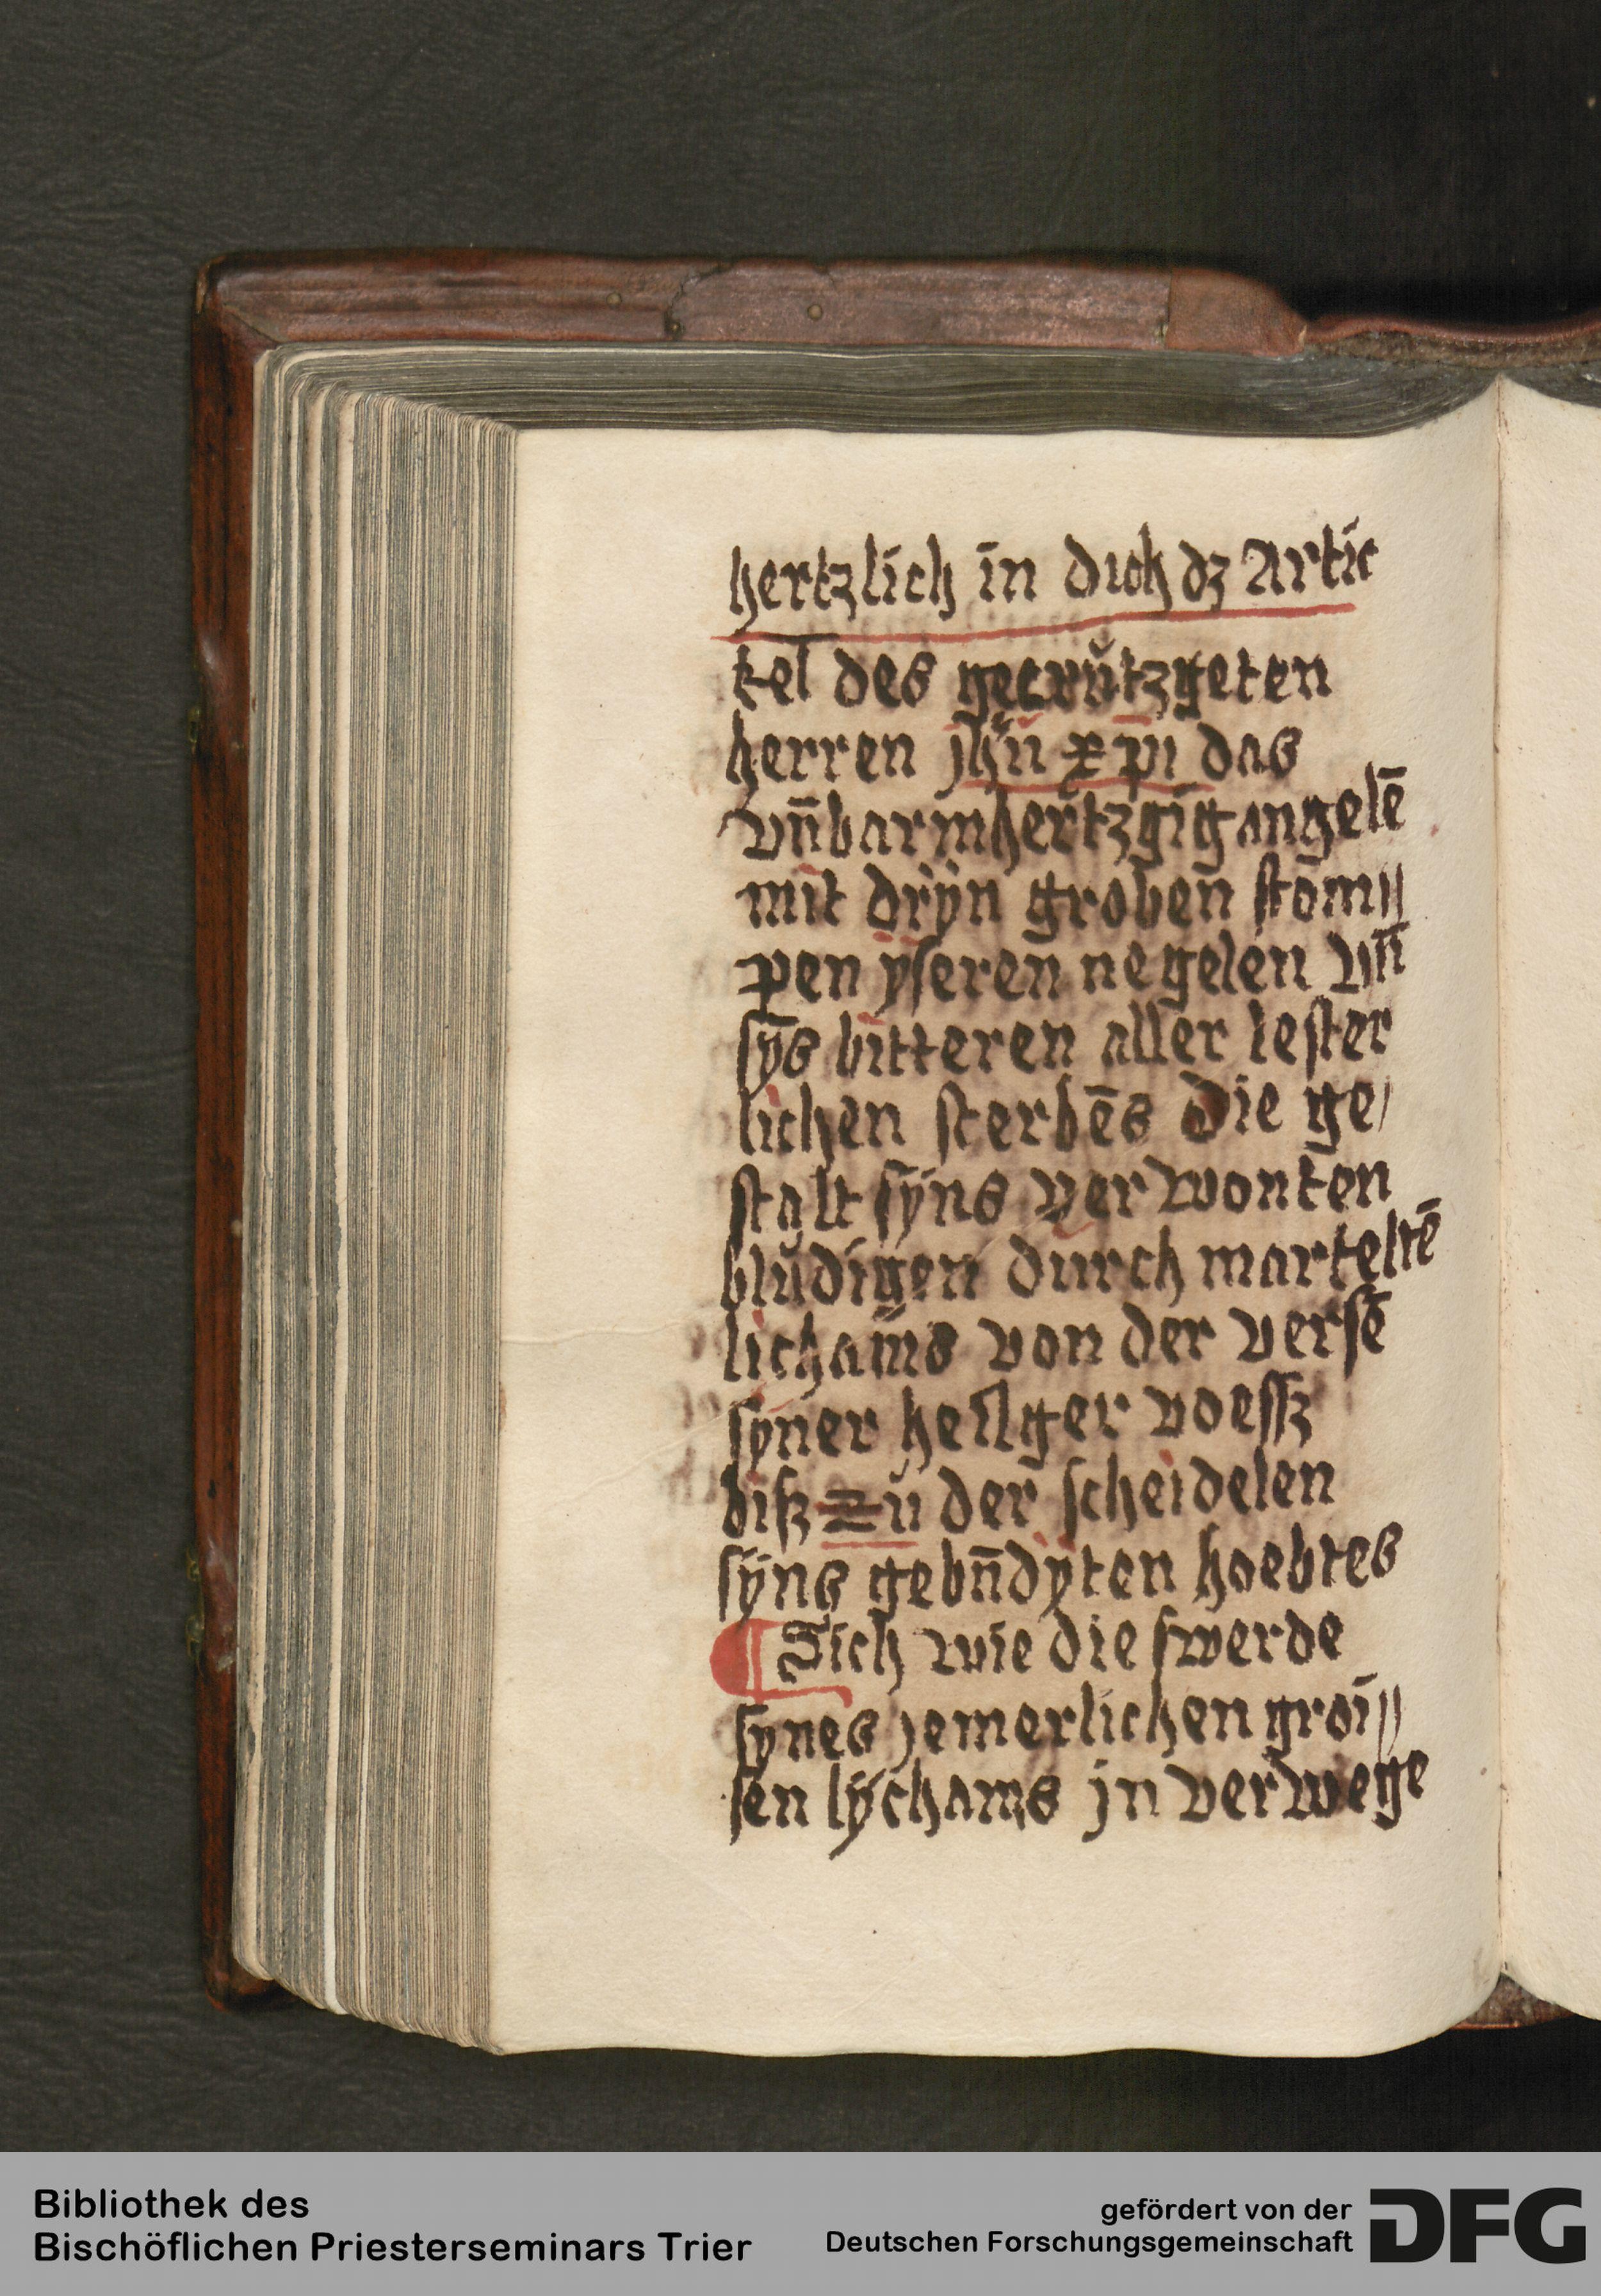 hertzlich in dich dz Artic
kel des gecrŭtzgeten
herren jhū xp̄i das
vn̄barmhertzgig angelē
mit drÿn groben stom//
pen yseren negelen vn̄
sÿs bitteren aller lester
lichen sterbēs die ge/
stalt sÿns verwonten
blŭdigen durch marteltē
lichams von der versē
syner heilger voessz
bisz zŭ der scheidelen
sÿns gebn̄dyten hoebtes
¶ Sich wie die swerde
synes jemerlichen groi//
sen lÿchams jn verwege
Bibliothek des
Bischöflichen Priesterseminars Trier
gefördert von der
Deutschen Forschungsgemeinschaft
DFG